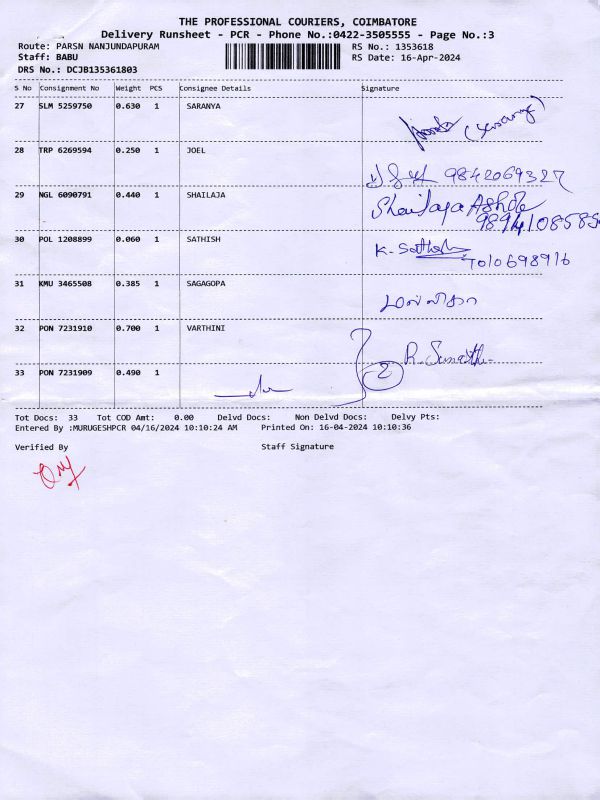 THE PROFESSIONAL COURIERS, COIMBATORE
Delivery Runsheet - PCR - Phone No.:0422-3505555 - Page No.:3
Route: PARSN NANJUNDAPURAM RS No.: 1353618
Staff: BABU RS Date: 16-Apr-2024
DRS No.: DCJB135361803
S No Consignment No Weight PCS Consignee Details Signature
27 SLM 5259750 0.630 1 SARANYA
28 TRP 6269594 0.250 1 JOEL
9842069327
29 NGL 6090791 0.440 1 SHAILAJA
Shailaja Ashok
9894108585
30 POL 1208899 0.060 1 SATHISH
K. Sathish
7010698916
31 KMU 3465508 0.385 1 SAGAGOPA
32 PON 7231910 0.700 1 VARTHINI
33 PON 7231909 0.490 1
2
Tot Docs: 33 Tot COD Amt: 0.00 Delvd Docs: Non Delvd Docs: Delvy Pts:
Entered By :MURUGESHPCR 04/16/2024 10:10:24 AM Printed On: 16-04-2024 10:10:36
Verified By Staff Signature